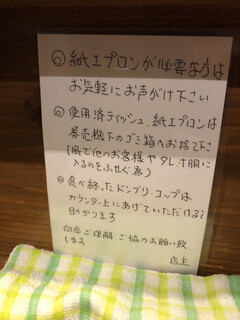 ◎紙エプロンが必要な方は
お気軽にお声がけ下さい
◎使用済ティッシュ、紙エプロンは
券売機下のゴミ箱へお捨て下さい
(風で他のお客様やタレ、丼に
入るのをふせぐ為)
◎食べ終ったドンブリ・コップは
カウンター上にあげていただけると
助かります
何卒ご理解、ご協力お願い致
します
店主